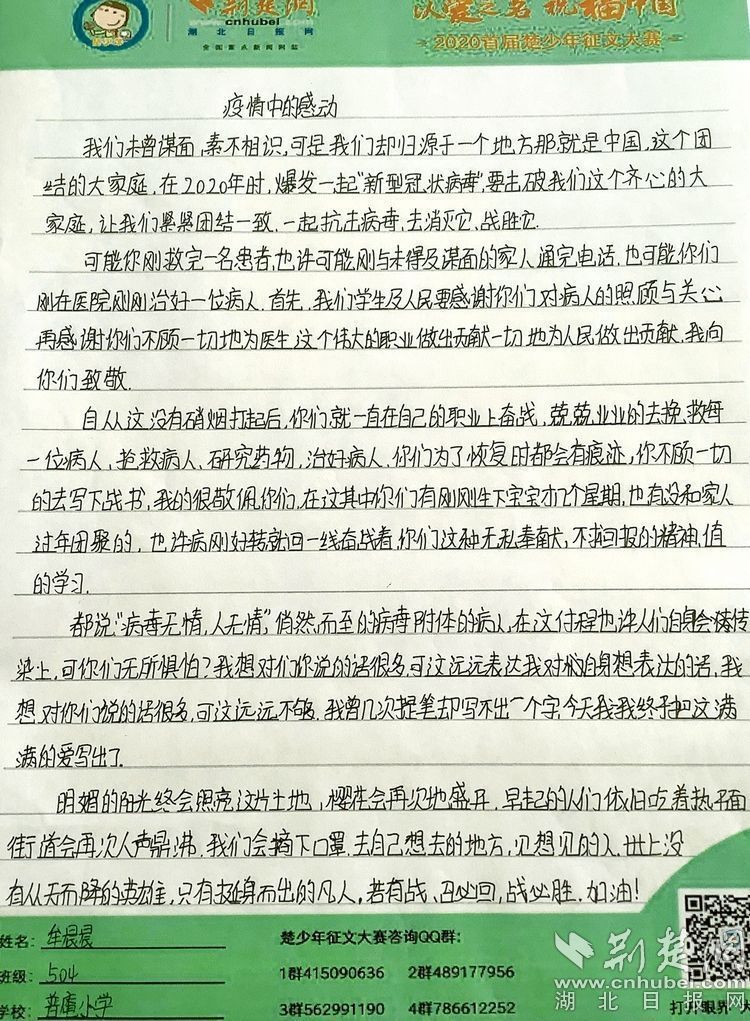 荆楚网
www.cnhubei.com
湖北日报网
全国重点新闻网站
以爱之名 祝福中国
2020首届楚少年征文大赛
疫情中的感动
我们未曾谋面,素不相识,可是我们却归源于一个地方那就是中国,这个团
结的大家庭,在2020年时,爆发一起"新型冠状病毒",要击破我们这个齐心的大
家庭,让我们紧紧团结一致.一起抗击病毒,去消灭它,战胜它.
可能你刚救完一名患者,也许可能刚与未得及谋面的家人通完电话.也可能你们
刚在医院刚刚治好一位病人.首先,我们学生及人民要感谢你们对病人的照顾与关心
再感谢你们不顾一切地为医生这个伟大的职业做出贡献一切地为人民做出贡献.我向
你们致敬.
自从这没有硝烟打起后,你们就一直在自己的职业上奋战,兢兢业业的去挽救每
一位病人,抢救病人,研究药物,治好病人.你们为了恢复时都会有痕迹,你不顾一切
的去写下战书,我的很敬佩你们.在这其中你们有刚刚生下宝宝才几个星期,也有没和家人
过年团聚的,也许病刚好转就回一线奋战着.你们这种无私奉献,不求回报的精神,值
的学习.
都说:"病毒无情,人无情",俏然而至的病毒附体的病人,在这付程也许人们自身会被传
染上,可你们无所俱怕?我想对们你说的话很多,可这远远表达我对们自身想表达的话,我
想对你们说的话很多,可这远远不够.我曾几次提笔却写不出一个字,今天我我终于把这满
满的爱写出了.
明媚的阳光终会照亮这片土地,樱花会再次地盛开.早起的人们依旧吃着热干面
街道会再次人声鼎沸.我们会摘下口罩.去自己想去的地方,见想见的人.世上没
有从天而降的英雄,只有挺身而出的凡人,若有战、召必回,战必胜.加油!
姓名:牟晨晨
班级:504
学校:普庙小学
楚少年征文大赛咨询QQ群:
1群415090636 2群489177956
3群562991190 4群786612252
荆楚网
www.cnhubei.com
湖北日报网
打开眼界